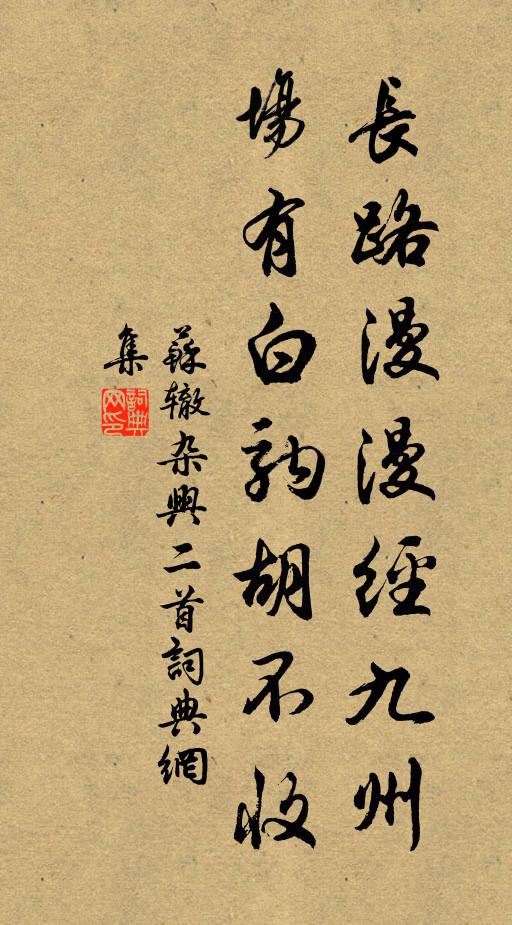 長路漫漫經九州
場有白駒胡不收
蘇轍杂興二首詞典網
集
詞典网印